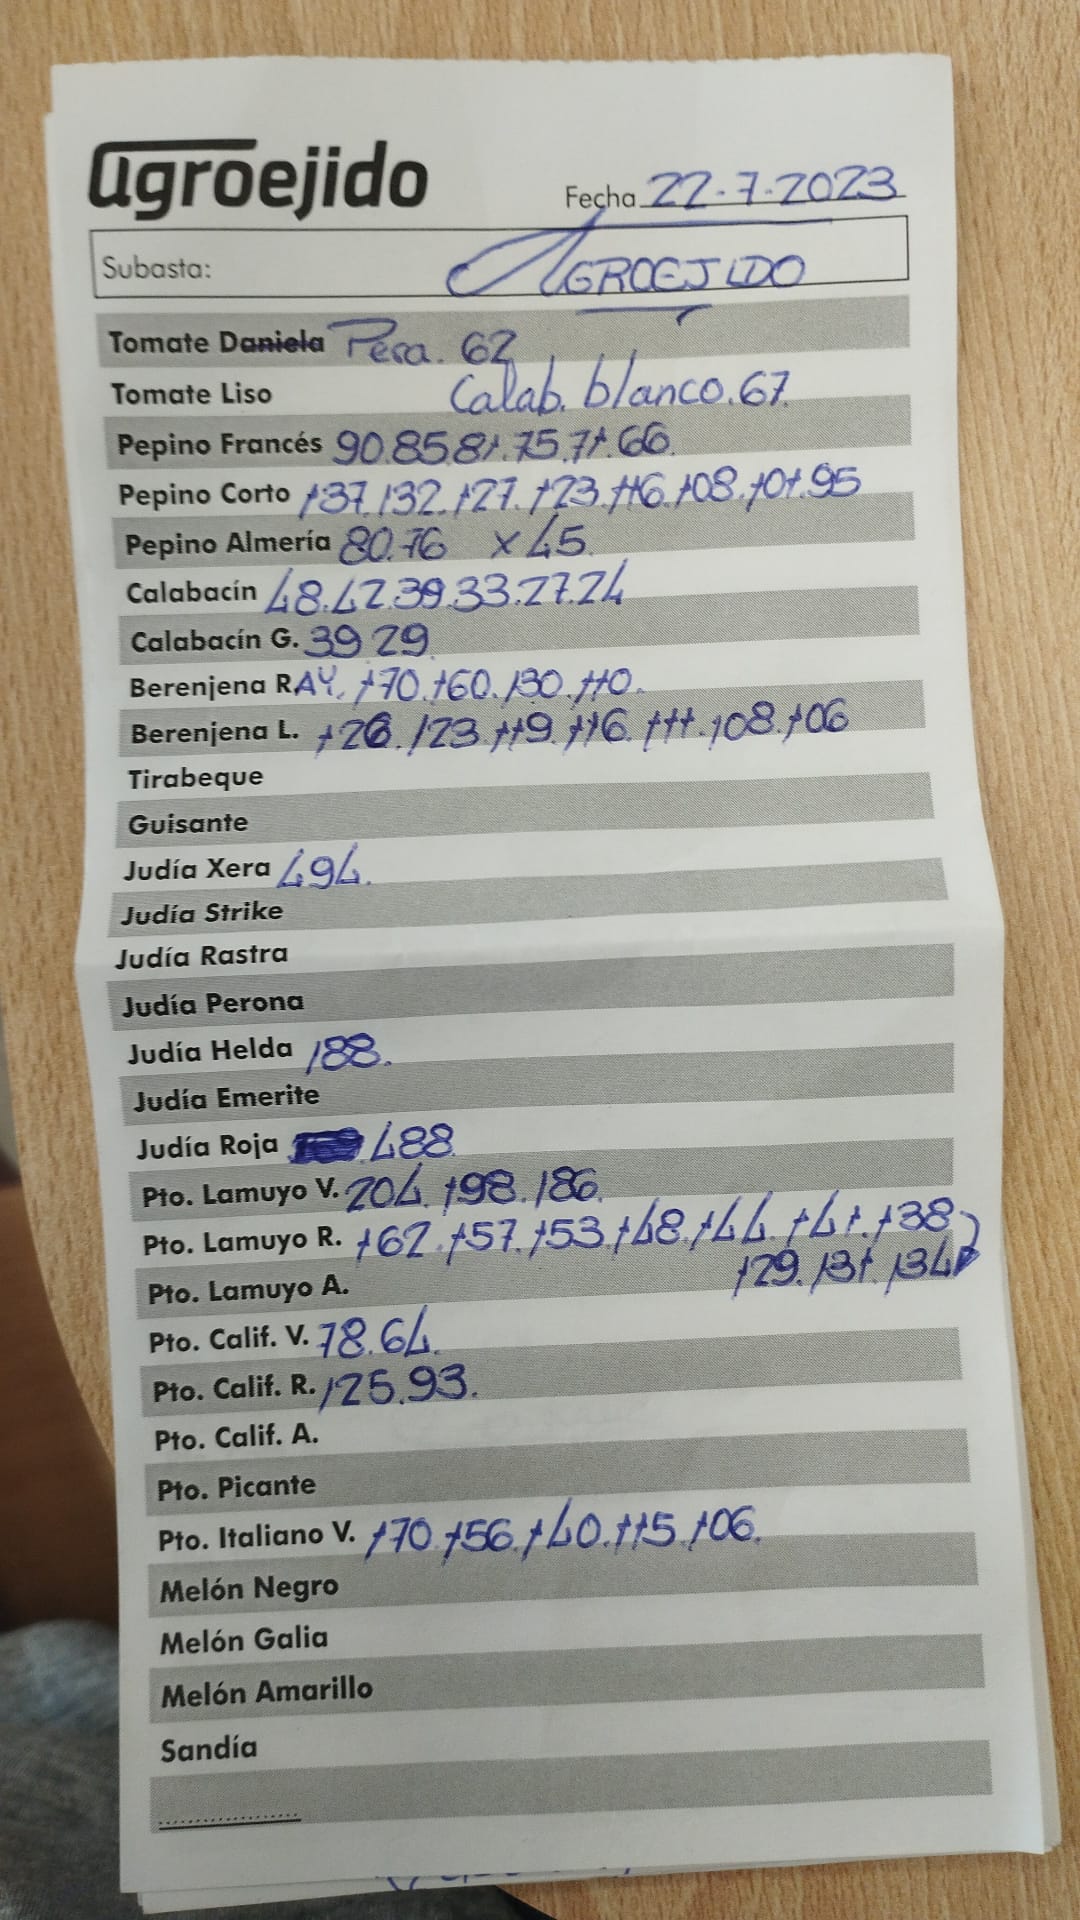 agroejido
Fecha 22-7-2023
Subasta: AGROEJIDO
Tomate Daniela Pera. 62
Tomate Liso Calab. blanco. 67.
Pepino Francés 90.85.81.75.71.66.
Pepino Corto 137.132.127.123.116.108.101.95
Pepino Almería 80.76 x 45.
Calabacín 48.42.39.33.27.24
Calabacín G. 39 29.
Berenjena RAY. 170.160.130.110.
Berenjena L. 126.123.119.116.111.108.106
Tirabeque
Guisante
Judía Xera 494.
Judía Strike
Judía Rastra
Judía Perona
Judía Helda 188.
Judía Emerite
Judía Roja 488.
Pto. Lamuyo V. 204.198.186.
Pto. Lamuyo R. 162.157.153.148.144.141.138
129.131.134
Pto. Lamuyo A.
Pto. Calif. V. 78.64.
Pto. Calif. R. 125.93.
Pto. Calif. A.
Pto. Picante
Pto. Italiano V. 170.156.140.115.106.
Melón Negro
Melón Galia
Melón Amarillo
Sandía